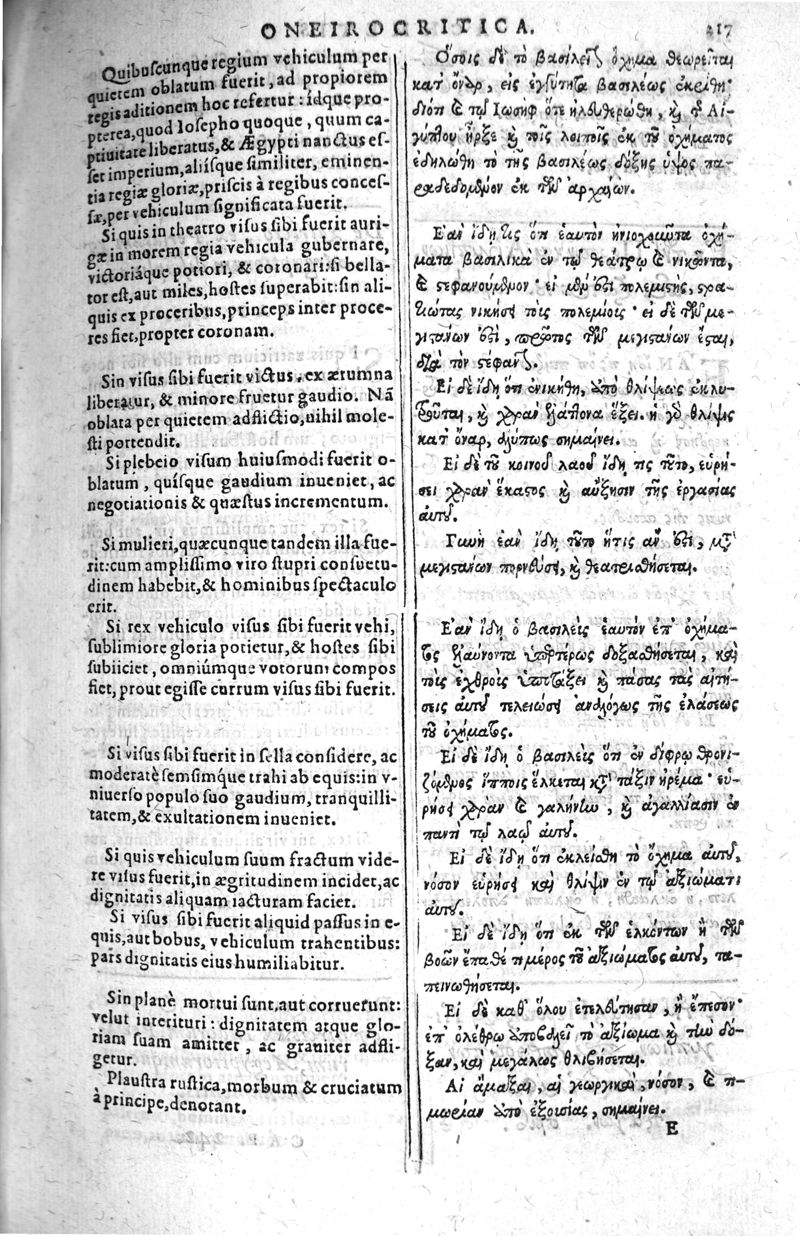 ONEIROCRITICA.
217
Quibuscunque regium vehiculum per
quietem oblatum fuerit, ad propiorem
regis aditionem hoc refertur: idque pro-
pterea, quod Iosepho quoque, quum ca-
ptiuitate liberatus, & Ægypti nanctus es-
set imperium, aliísque similiter, eminen-
tia regiæ gloriæ, priscis à regibus conces-
sæ, per vehiculum significata fuerit.
Si quis in theatro visus sibi fuerit auri-
gæ in morem regia vehicula gubernare,
victoriáque potiori, & coronari: si bella-
tor est, aut miles, hostes superabit: sin ali-
quis ex proceribus, princeps inter proce-
res fiet, propter coronam.
Sin visus sibi fuerit victus, ex ærumna
liberatur, & minore fruetur gaudio. Nã
oblata per quietem adflictio, nihil mole-
sti portendit.
Si plebeio visum huiusmodi fuerit o-
blatum, quisque gaudium inueniet, ac
negotiationis & quæstus incrementum.
Si mulieri, quæcunque tandem illa fue-
rit: cum amplissimo viro stupri consuetu-
dinem habebit, & hominibus spectaculo
erit.
Si rex vehiculo visus sibi fuerit vehi,
sublimiore gloria potietur, & hostes sibi
subiiciet, omniúmque votorum compos
fiet, prout egisse currum visus sibi fuerit.
Si visus sibi fuerit in sella considere, ac
moderatè sensimque trahi ab equis: in v-
niuerso populo suo gaudium, tranquilli-
tatem, & exultationem inueniet.
Si quis vehiculum suum fractum vide-
re visus fuerit, in ægritudinem incidet, ac
dignitatis aliquam iacturam faciet.
Si visus sibi fuerit aliquid passus in e-
quis, aut bobus, vehiculum trahentibus:
pars dignitatis eius humiliabitur.
Sin planè mortui sunt, aut corruerunt:
velut interituri: dignitatem atque glo-
riam suam amittet, ac grauiter adfli-
getur.
Plaustra rustica, morbum & cruciatum
à principe, denotant.
Ὅσοις δὲ τὸ βασιλέως ὄχημα θεωρεῖται
κατ' ὄναρ, εἰς ἐγγύτητα βασιλέως ἐκρίθη·
διότι καὶ τῷ Ἰωσὴφ ὅτε ἠλευθερώθη, καὶ τῆς Αἰ-
γύπτου ἦρξε καὶ τοῖς λοιποῖς ἐκ τοῦ ὀχήματος
ἐδηλώθη τὸ τῆς βασιλέως δόξης ὕψος πα-
ραδεδομένον ἐκ τῶν ἀρχαίων.
Ἐὰν ἴδῃ τις ὅτι ἑαυτὸν ἡνιοχοῦντα ὀχή-
ματα βασιλικὰ ἐν τῷ θεάτρῳ καὶ νικῶντα,
καὶ στεφανούμενον· εἰ μέν ἐστι πολεμιστής, στρα-
τιώτας νικήσει τοῖς πολεμίοις· εἰ δὲ τῶν με-
γιστάνων ἐστὶ, πρῶτος τῶν μεγιστάνων ἔσται,
διὰ τὸν στέφανον.
Εἰ δὲ ἴδῃ ὅτι ἐνικήθη, ἀπὸ θλίψεως ἐκλυ-
τροῦται, καὶ χαρὰν ἐλάττονα ἕξει. ἡ γὰρ θλίψις
κατ' ὄναρ, ἀλύπως σημαίνει.
Εἰ δὲ τοῦ κοινοῦ λαοῦ ἴδῃ τις τοῦτο, εὑρή-
σει χαρὰν ἕκαστος καὶ αὔξησιν τῆς ἐργασίας
αὐτοῦ.
Γυνὴ ἐὰν ἴδῃ τοῦτο ἥτις ἂν ἐστὶ, μετὰ
μεγιστάνων πορνεύσει, καὶ θεατρισθήσεται.
Ἐὰν ἴδῃ ὁ βασιλεὺς ἑαυτὸν ἐπ' ὀχήμα-
τος ἐλαύνοντα ὑπερτέρως δοξασθήσεται, καὶ
τοῖς ἐχθροῖς ὑποτάξει καὶ πάσας τὰς αἰτή-
σεις αὐτοῦ τελειώσει ἀναλόγως τῆς ἐλάσεως
τοῦ ὀχήματος.
Εἰ δὲ ἴδῃ ὁ βασιλεὺς ὅτι ἐν δίφρῳ θρονι-
ζόμενος ἵπποις ἕλκεται κατὰ τάξιν ἠρέμα· εὑ-
ρήσει χαρὰν καὶ γαλήνην, καὶ ἀγαλλίασιν ἐν
παντὶ τῷ λαῷ αὐτοῦ.
Εἰ δὲ ἴδῃ ὅτι ἐκλείσθη τὸ ὄχημα αὐτοῦ,
νόσον εὑρήσει καὶ θλῖψιν ἐν τῷ ἀξιώματι
αὐτοῦ.
Εἰ δὲ ἴδῃ ὅτι ἐκ τῶν ἑλκόντων ἢ τῶν
βοῶν ἔπαθέ τι μέρος τοῦ ἀξιώματος αὐτοῦ, τα-
πεινωθήσεται.
Εἰ δὲ καθ' ὅλου ἐτελεύτησαν, ἢ ἔπεσον
ἐπ' ὀλέθρῳ ἀποβαλεῖ τὸ ἀξίωμα καὶ τὴν δό-
ξαν, καὶ μεγάλως θλιβήσεται.
Αἱ ἅμαξαι, αἱ γεωργικαὶ, νόσον, καὶ τι-
μωρίαν ἀπὸ ἐξουσίας, σημαίνει.
E